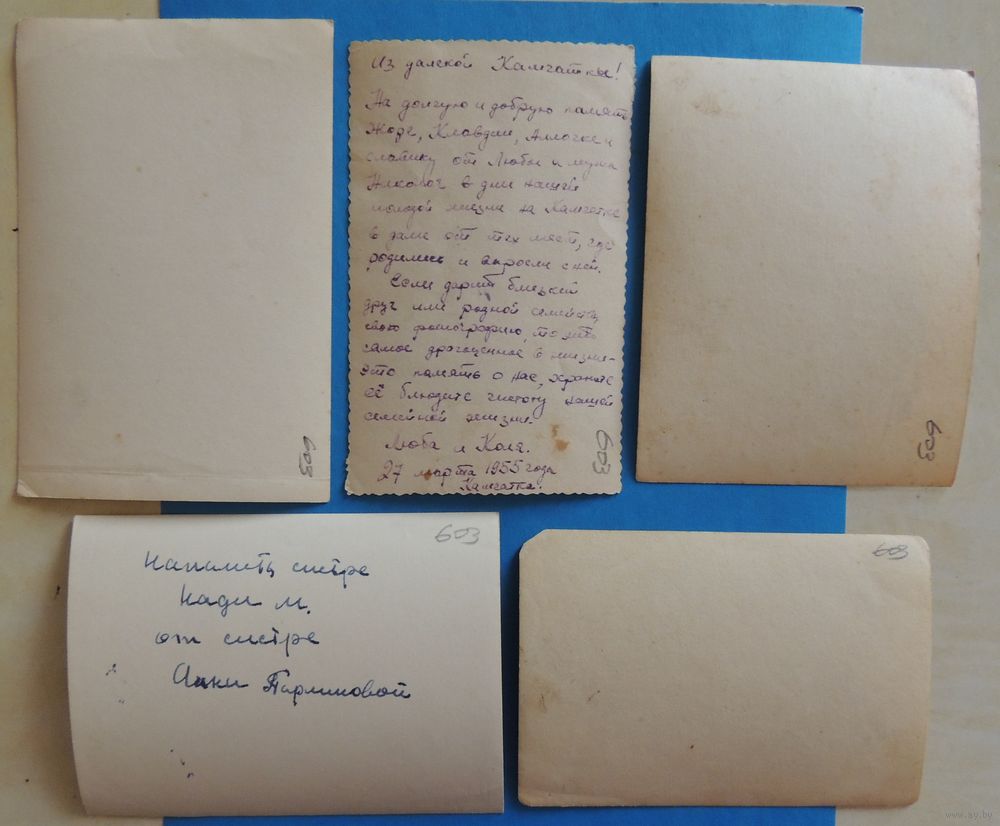 Из далекой Камчатки!
На долгую и добрую память
Жоре, Клавдии, Аллочке и
Славику от Любы и мужа
Николая в дни нашей
молодой жизни на Камчатке
в дали от тех мест, где
родились и выросли с ней.
Если дарит близкий
друг или родной семейству
свою фотографию, то это
самое драгоценное в жизни-
это память о нас, храните
её блюдите чистоту нашей
семейной жизни.
Люба и Коля.
27 марта 1955 года
Камчатка.
603
603
603
603
Напамить систре
Нади М.
от систре
Анни
603
www.ay.by